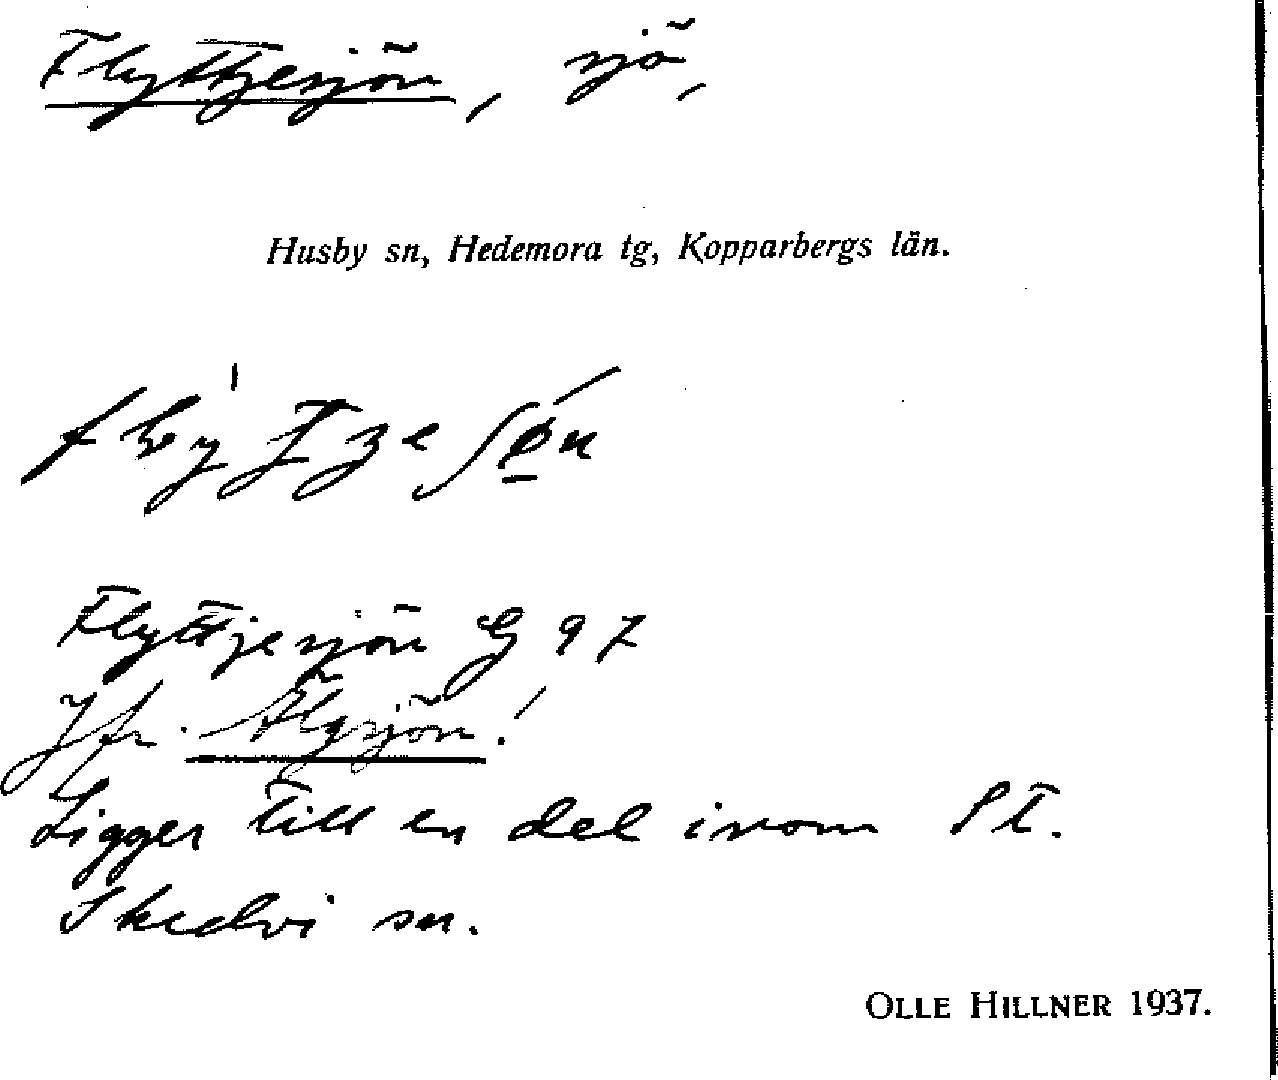 Flyttjesjön, sjö,
Husby sn, Hedemora tg, Kopparbergs län.
Flyttjesjön G 97
Jfr. Älgsjön!
Ligger till en del inom St.
Skedvi sn.
OLLE HILLNER 1937.